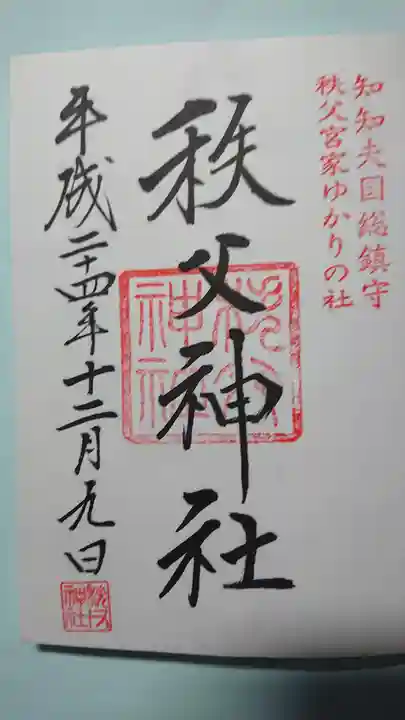 知知夫国総鎮守
秩父宮家ゆかりの社
秩父神社
秩父神社
平成二十四年十二月九日
秩父神社